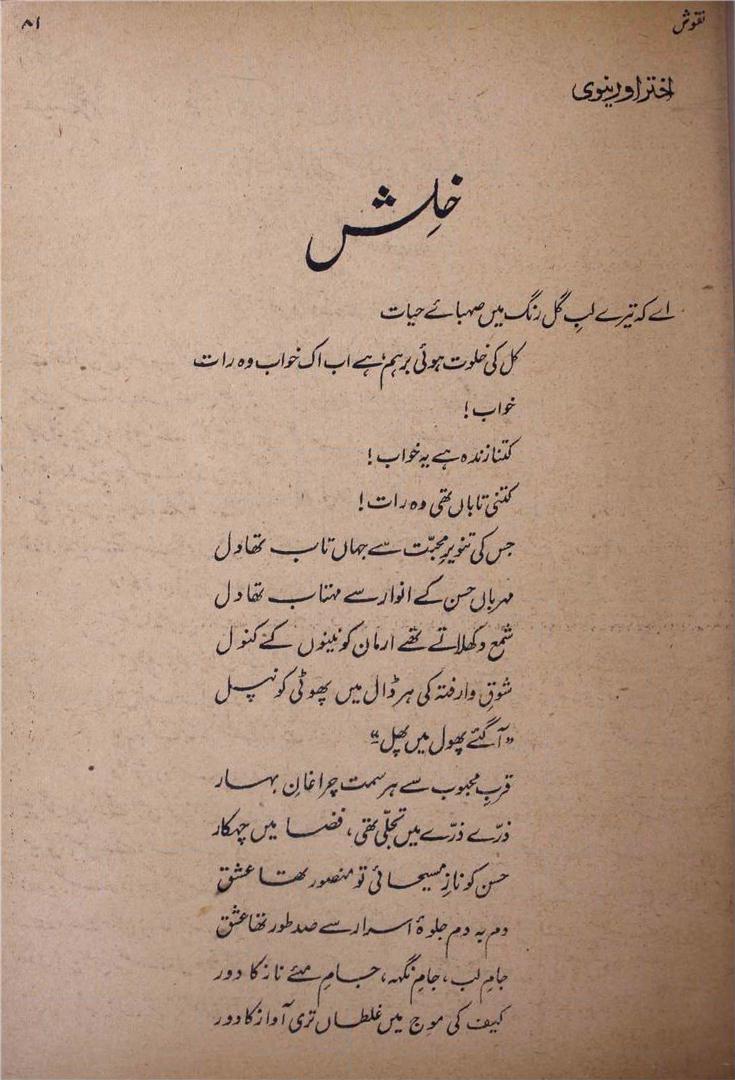 نقوش
۸۱
اختر اورینوی
خلِش
اے کہ تیرے لبِ گل رنگ میں صہبائے حیات
کل کی خلوت ہوئی برہم، ہے اب اک خواب وہ رات
خواب!
کتنا زندہ ہے یہ خواب!
کتنی تاباں تھی وہ رات!
جس کی تنویرِ محبّت سے جہاں تاب تھا دل
مہرباں حسن کے انوار سے مہتاب تھا دل
شمع دکھلاتے تھے ارمان کو نینوں کے کنول
شوقِ وارفتہ کی ہر ڈال میں پھوٹی کونپل
”آ گئے پھول میں پھل“
قربِ محبوب سے ہر سمت چراغانِ بہار
ذرّے ذرّے میں تجلّی تھی، فضا میں چہکار
حسن کو نازِ مسیحائی تو منصور تھا عشق
دم بہ دم جلوۂ اسرار سے صد طور تھا عشق
جامِ لب، جامِ نگہہ، جامِ مئے ناز کا دور
کیف کی موج میں غلطاں تری آواز کا دور